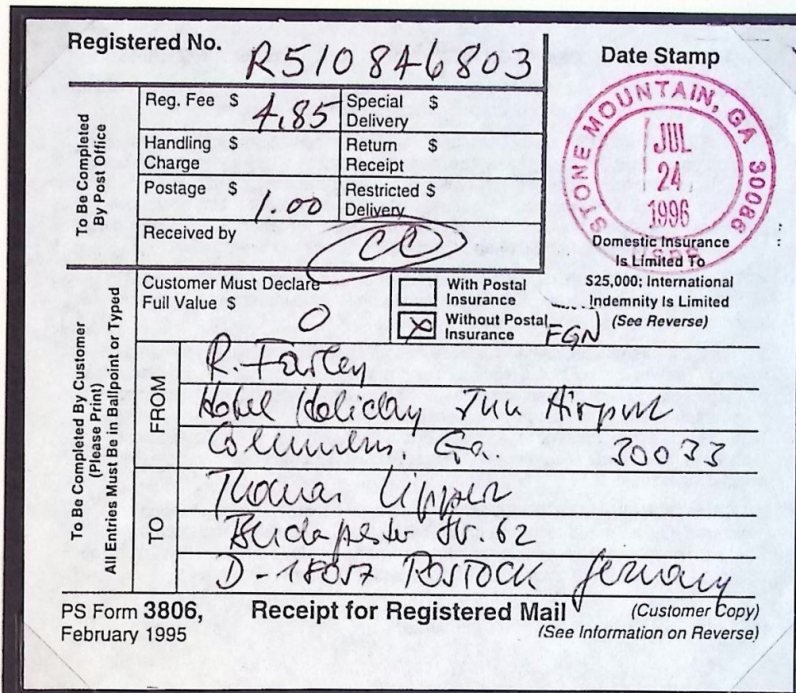 Registered No. R510846803
Date Stamp
To Be Completed By Post Office
Reg. Fee $ 4.85 Special Delivery $
Handling Charge $ Return Receipt $
Postage $ 1.00 Restricted Delivery $
Received by CC
STONE MOUNTAIN, GA 30086
JUL
24
1996
USPS
Domestic Insurance
Is Limited To
$25,000; International
Indemnity Is Limited
(See Reverse)
To Be Completed By Customer
(Please Print)
All Entries Must Be in Ballpoint or Typed
Customer Must Declare
Full Value $ 0
With Postal Insurance
X Without Postal Insurance FGN
FROM
R. Farley
Hotel Holiday Inn Airport
Columbus, Ga. 30033
TO
Thomas Lippert
Budapester Str. 62
D-18057 ROSTOCK Germany
PS Form 3806,
February 1995
Receipt for Registered Mail
(Customer Copy)
(See Information on Reverse)